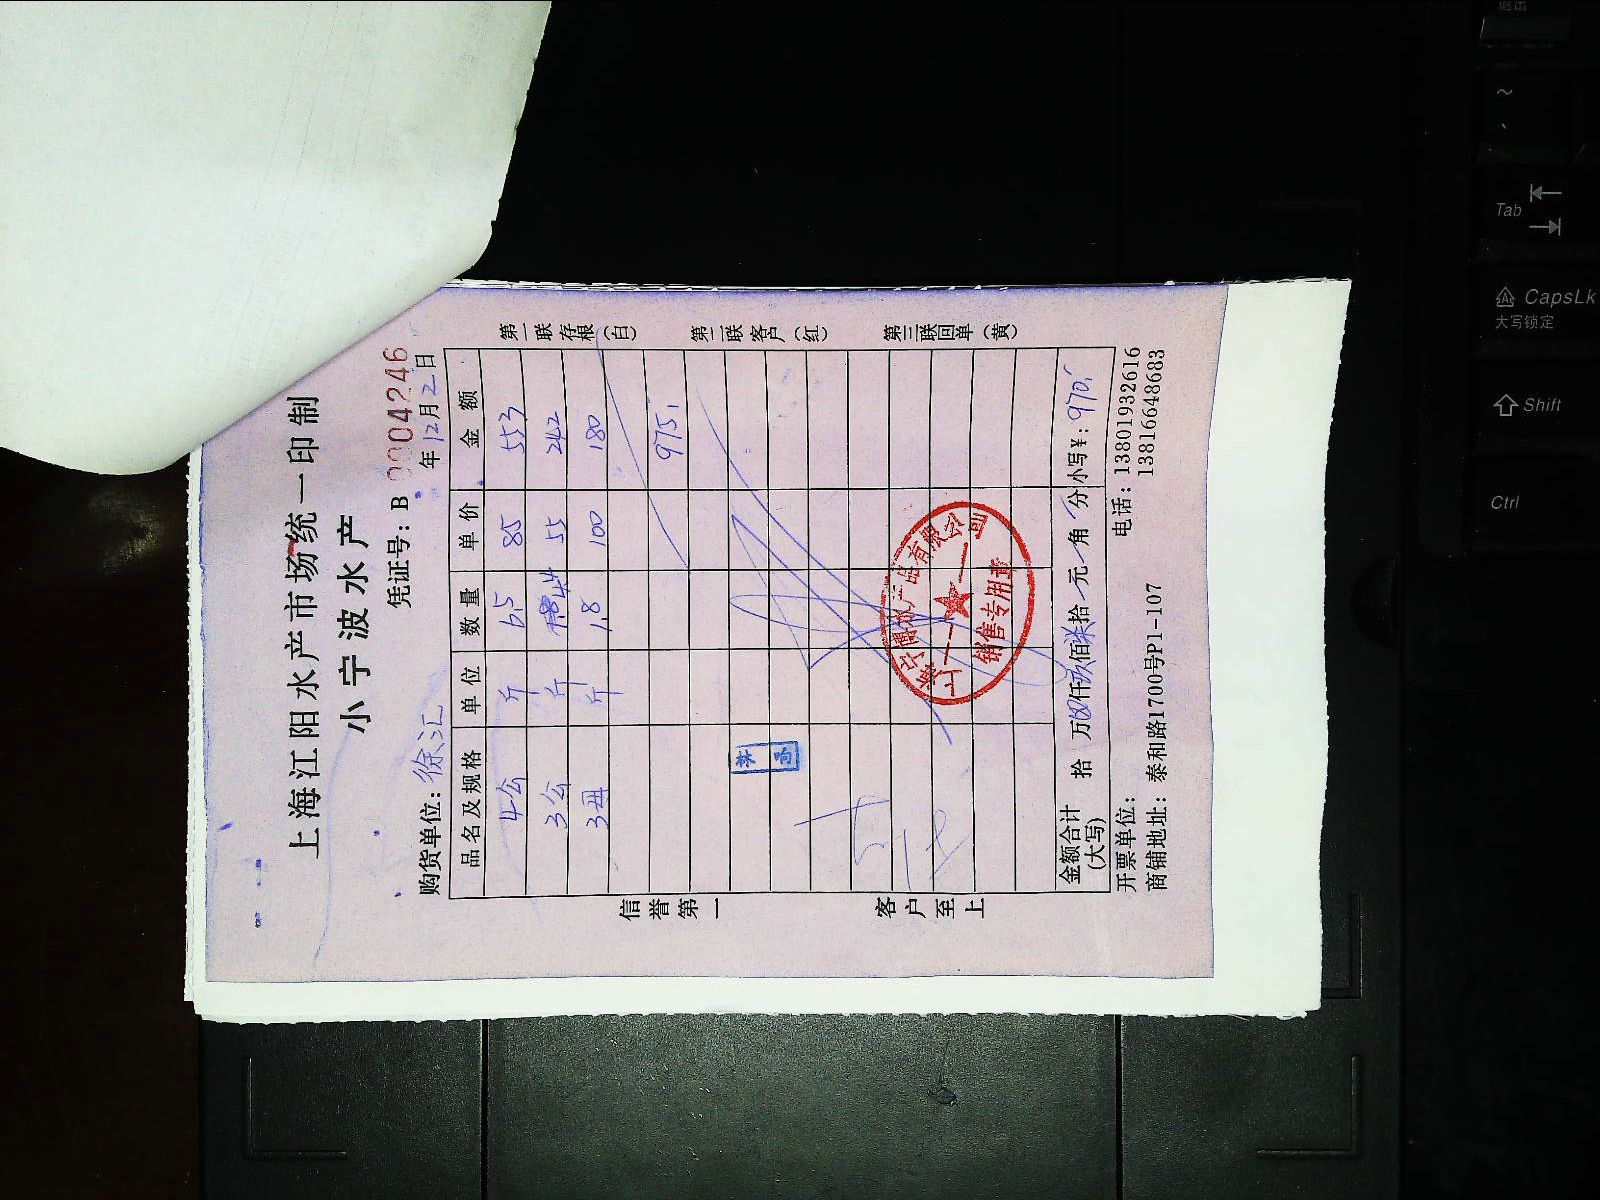 上海江阳水产市场统一印制
小宁波水产
凭证号：B 0004246
购货单位：徐汇 年 12月 2 日
品名及规格 单位 数量 单价 金额
4公 斤 6.5 85 553
3公 斤 4.4 55 242
3母 斤 1.8 100 180
975.
金额合计(大写) 拾 万 仟玖佰柒拾 元 角 分 小写¥：970.
开票单位：
电话：13801932616
13816648683
商铺地址：泰和路1700号P1-107
第一联存根（白）
第二联客户（红）
第三联回单（黄）
信誉第一
客户至上
销售专用章
~
Tab
CapsLk
大写锁定
Shift
Ctrl